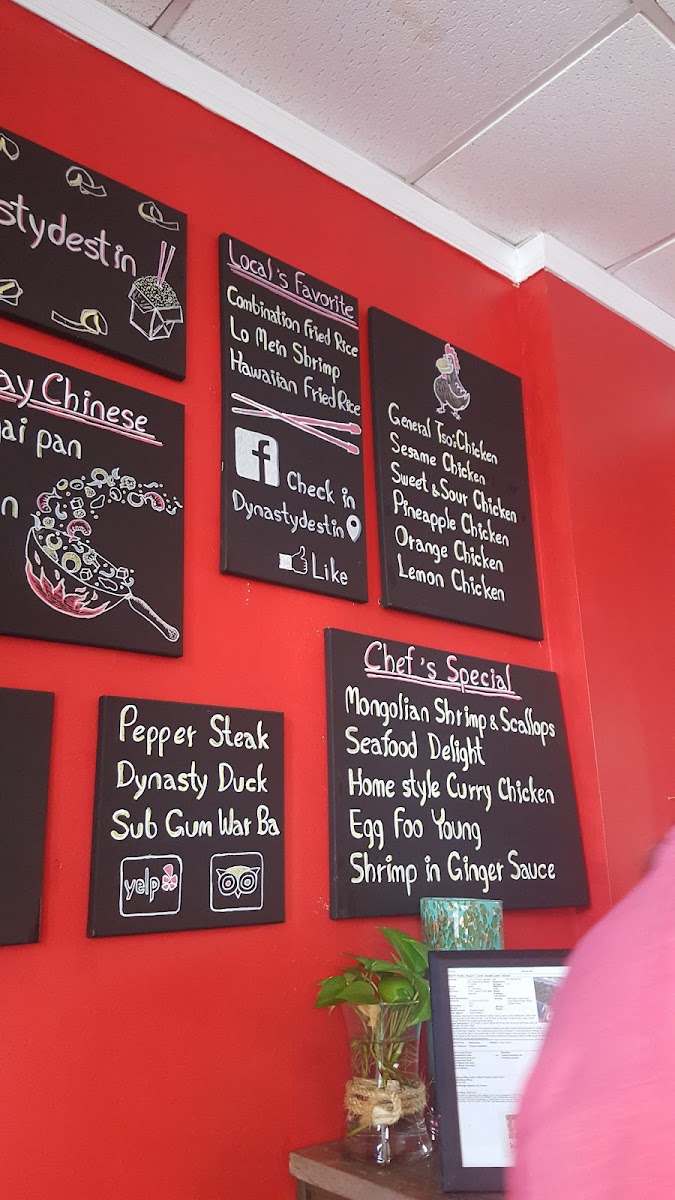 stydestin
ay Chinese
ai pan
n
Local's Favorite
Combination Fried Rice
Lo Mein Shrimp
Hawaiian Fried Rice
f
Check in
Dynastydestin
Like
General Tso's Chicken
Sesame Chicken
Sweet & Sour Chicken
Pineapple Chicken
Orange Chicken
Lemon Chicken
Pepper Steak
Dynasty Duck
Sub Gum War Ba
yelp
Chef's Special
Mongolian Shrimp & Scallops
Seafood Delight
Home style Curry Chicken
Egg Foo Young
Shrimp in Ginger Sauce